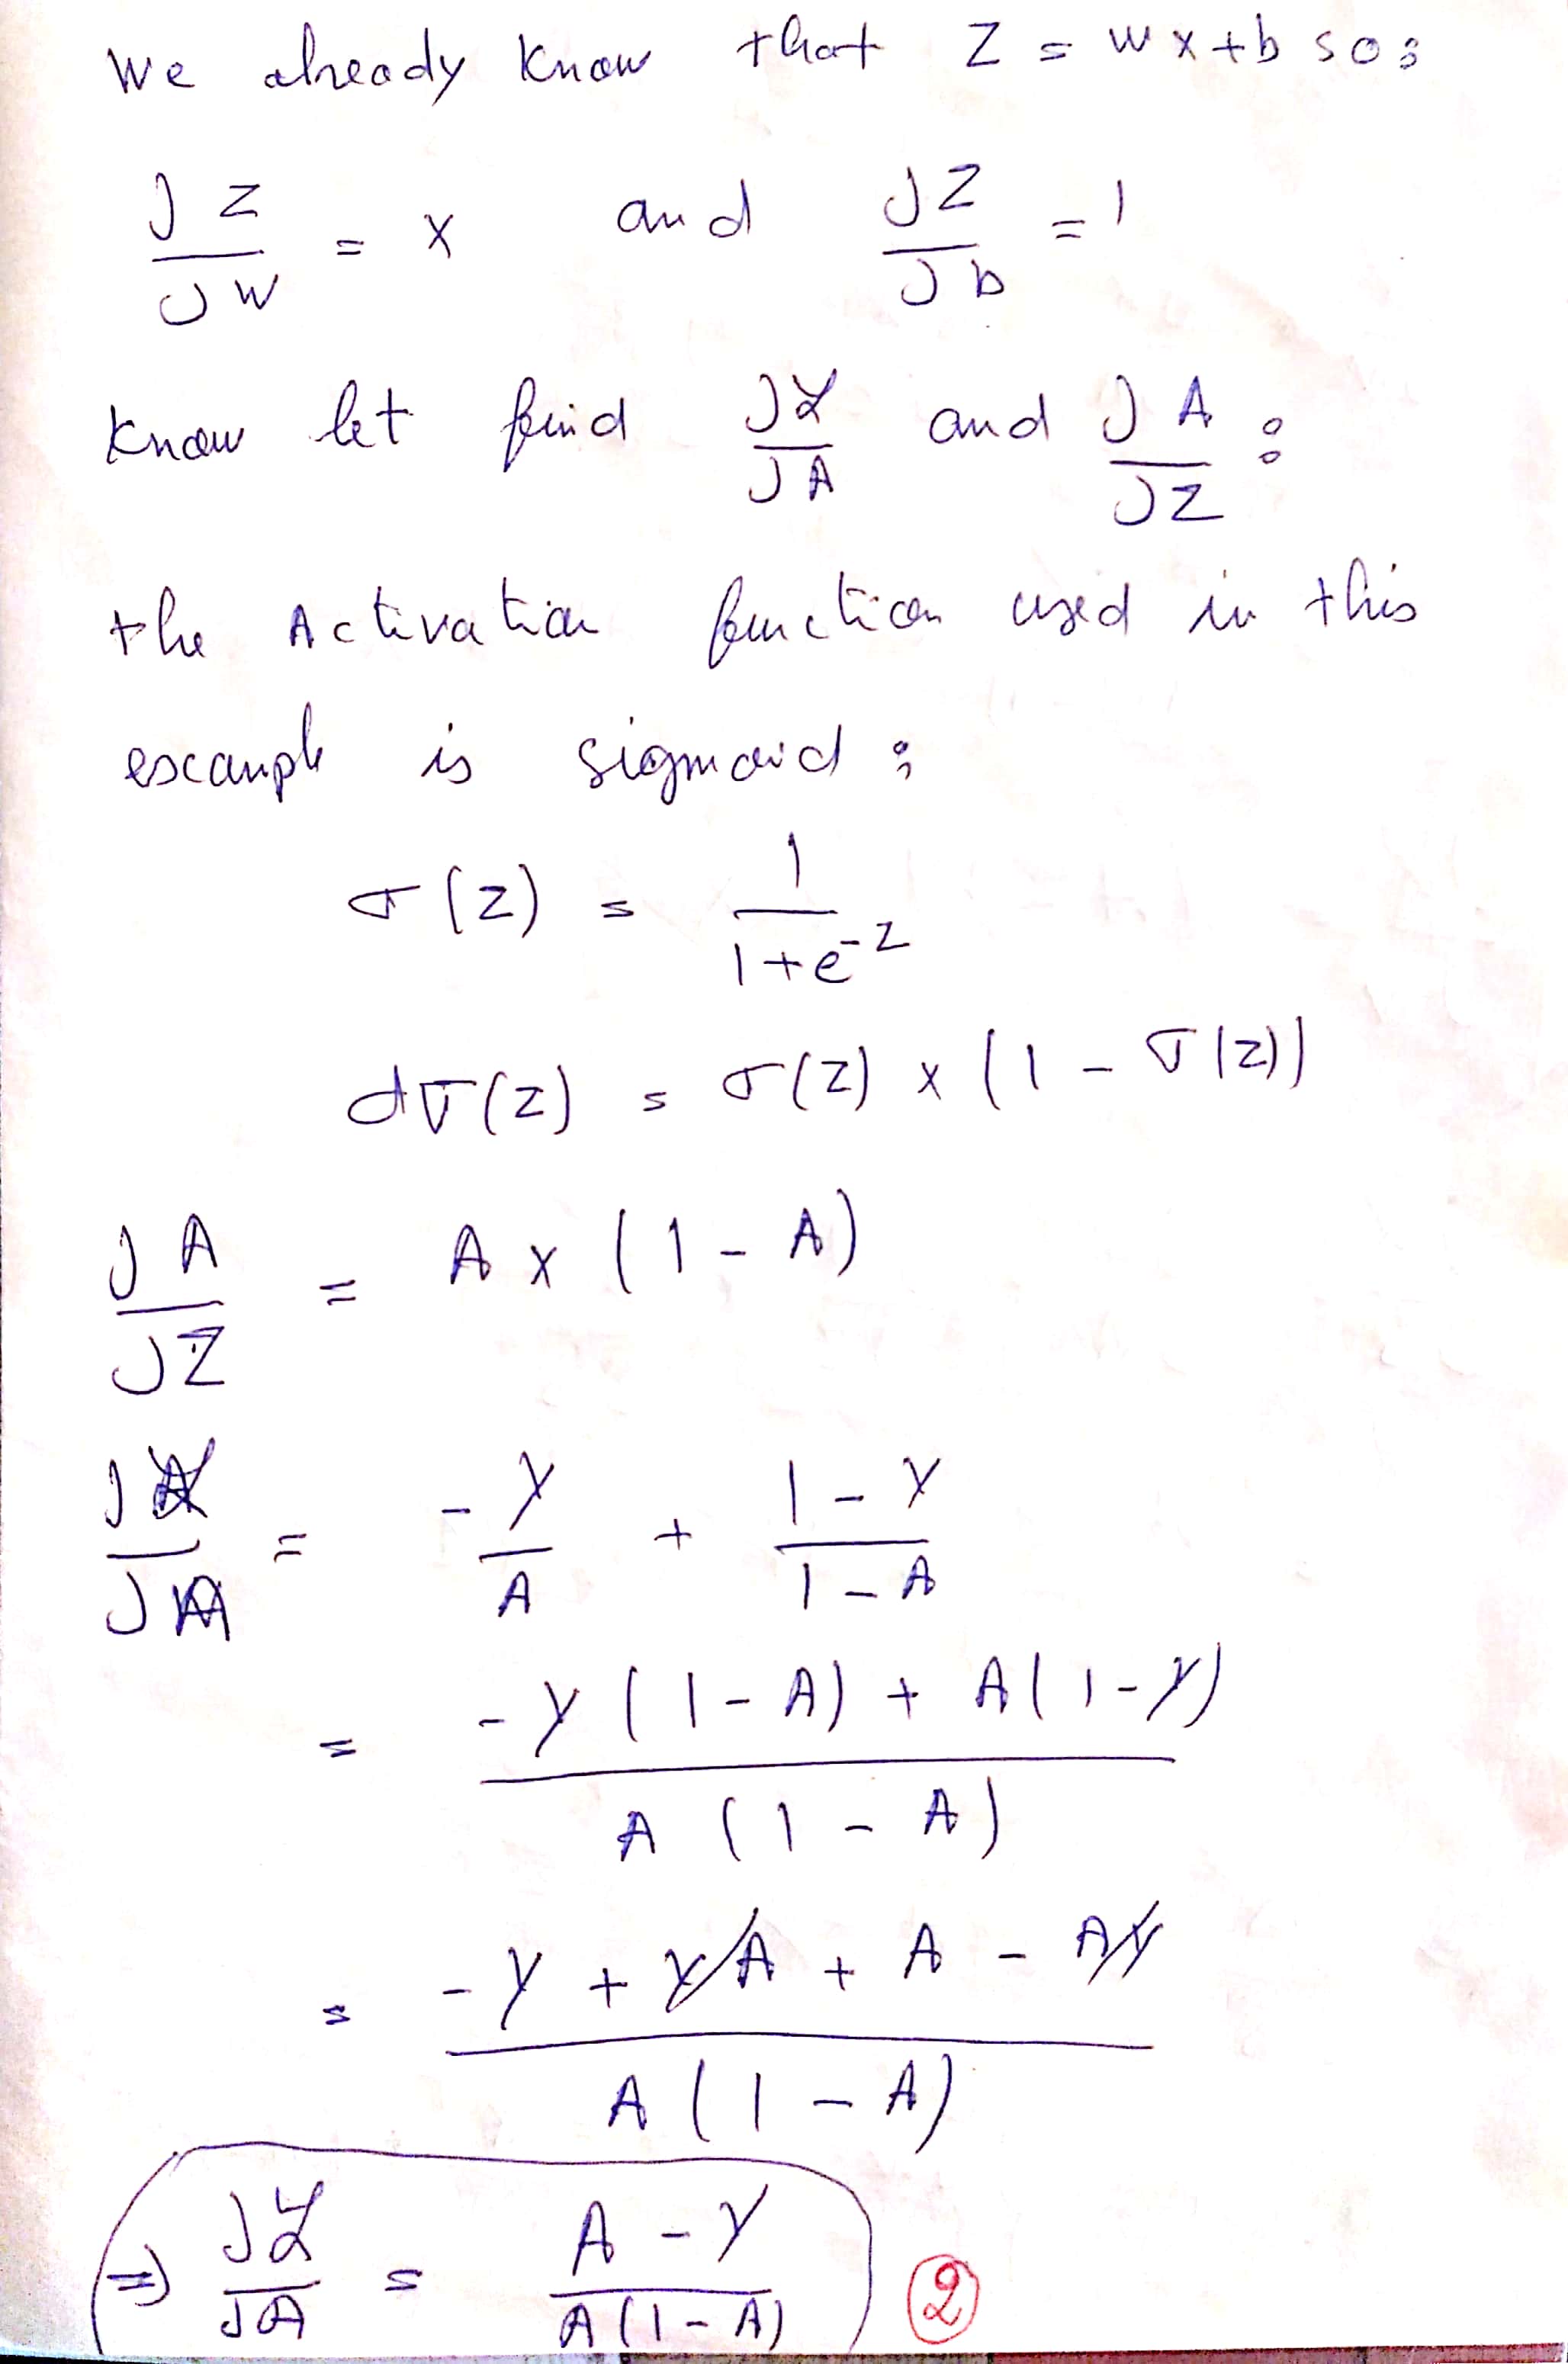 We already know that Z = wx+b so:
∂Z/∂w = x and ∂Z/∂b = 1
know let find ∂ℒ/∂A and ∂A/∂Z :
the Activation function used in this
example is sigmoid :
σ(z) = 1/(1+e^-z)
dσ(z) = σ(z) x (1 - σ(z))
∂A/∂Z = A x (1 - A)
∂ℒ/∂A = -y/A + (1-y)/(1-A)
= (-y(1-A) + A(1-y))/(A(1-A))
= (-y + yA + A - Ay)/(A(1-A))
⇒ ∂ℒ/∂A = (A-y)/(A(1-A)) ②